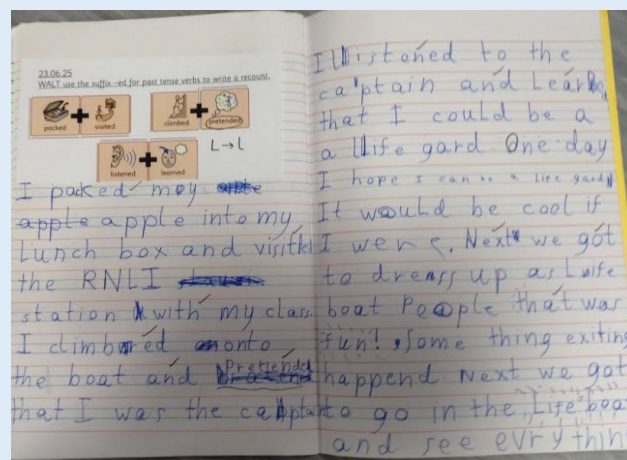 23.06.25
WALT use the suffix -ed for past tense verbs to write a recount.
packed
visited
climbed
pretended
listened
learned
L→l
I packed my
apple apple into my
lunch box and visited
the RNLI
station with my class.
I climbed onto
the boat and Pretended
that I was the captain
I listoned to the
captain and Learned
that I could be a
a life gard. One day
I hope I can be a life gard
It would be cool if
I were. Next we got
to dress up as Life
boat People that was
fun!, some thing exiting
happend. Next we got
to go in the, Life boat
and see evry thing